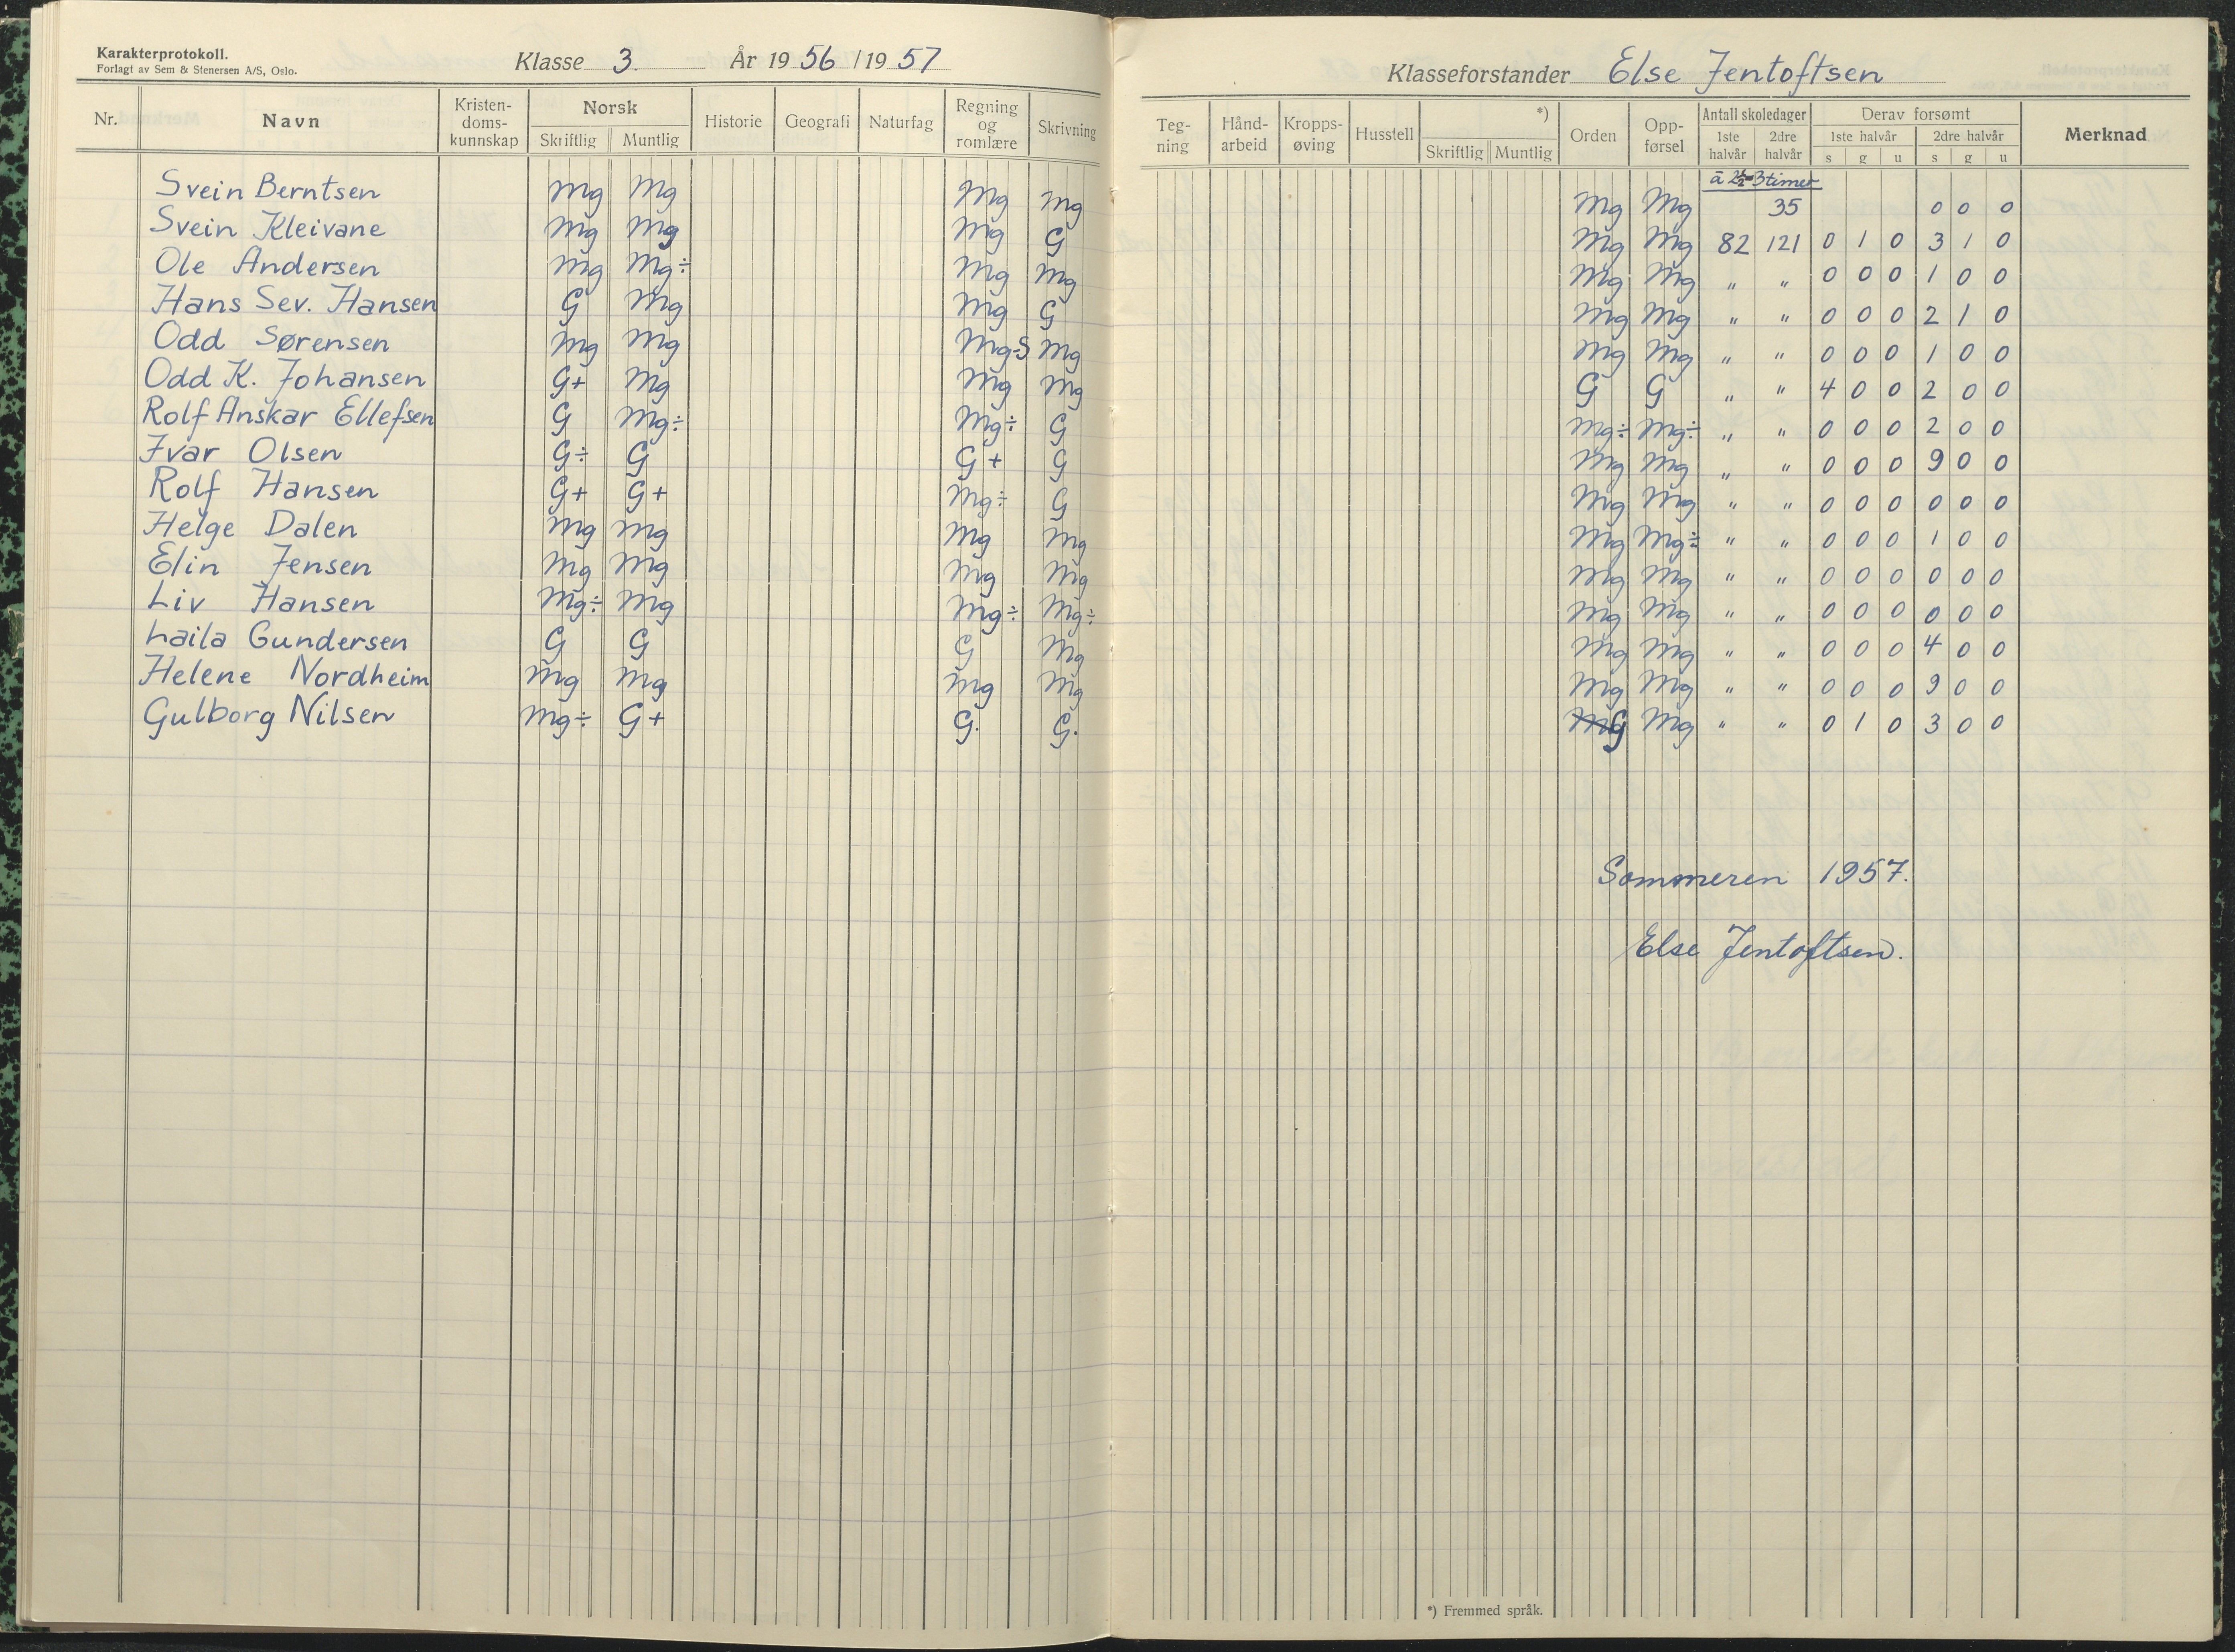 Karakterprotokoll.
Forlagt av Sem & Stenersen A/S, Oslo.
Klasse 3. År 1956 / 1957
Klasseforstander Else Jentoftsen
Nr. Navn Kristendomskunnskap Norsk Skriftlig Muntlig Historie Geografi Naturfag Regning og romlære Skrivning Tegning Håndarbeid Kroppsøving Husstell *) Skriftlig Muntlig Orden Oppførsel Antall skoledager 1ste halvår 2dre halvår Derav forsømt 1ste halvår s g u 2dre halvår s g u Merknad
à 2½-3 timer
Svein Berntsen Mg Mg Mg Mg Mg Mg 35 0 0 0
Svein Kleivane Mg Mg Mg G Mg Mg 82 121 0 1 0 3 1 0
Ole Andersen Mg Mg÷ Mg Mg Mg Mg " " 0 0 0 1 0 0
Hans Sev. Hansen G Mg Mg G Mg Mg " " 0 0 0 2 1 0
Odd Sørensen Mg Mg Mg-S Mg Mg Mg " " 0 0 0 1 0 0
Odd K. Johansen G+ Mg Mg Mg G G " " 4 0 0 2 0 0
Rolf Anskar Ellefsen G Mg÷ Mg÷ G Mg÷ Mg÷ " " 0 0 0 2 0 0
Ivar Olsen G÷ G G+ G Mg Mg " " 0 0 0 9 0 0
Rolf Hansen G+ G+ Mg÷ G Mg Mg " " 0 0 0 0 0 0
Helge Dalen Mg Mg Mg Mg Mg Mg÷ " " 0 0 0 1 0 0
Elin Jensen Mg Mg Mg Mg Mg Mg " " 0 0 0 0 0 0
Liv Hansen Mg÷ Mg Mg÷ Mg÷ Mg Mg " " 0 0 0 0 0 0
Laila Gundersen G G G Mg Mg Mg " " 0 0 0 4 0 0
Helene Nordheim Mg Mg Mg Mg Mg Mg " " 0 0 0 9 0 0
Gulborg Nilsen Mg÷ G+ G. G. G Mg " " 0 1 0 3 0 0
Sommeren 1957.
Else Jentoftsen.
*) Fremmed språk.